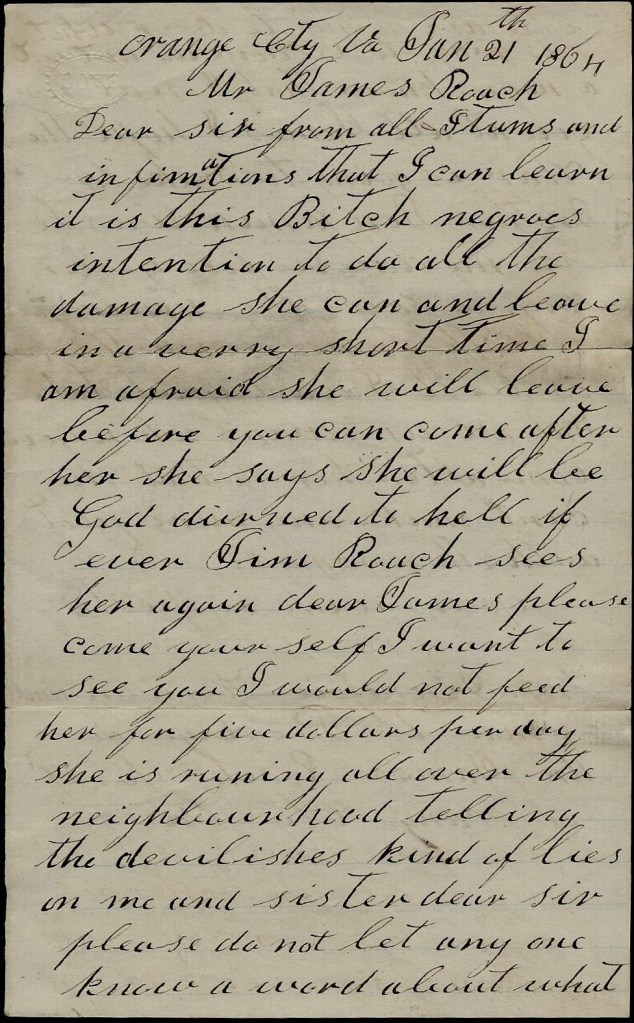 Orange Cty Va Jan 21th 1864
Mr James Roach
Dear sir from all Itums and
infimations that I can learn
it is this Bitch negroes
intention to do all the
damage she can and leave
in a verry short time I
am afraid she will leave
before you can come after
her she says she will be
God durned to hell if
ever Jim Roach sees
her again dear James please
come your self I want to
see you I would not feed
her for five dollars per day
she is runing all over the
neighbourhood telling
the devilishes kind of lies
on me and sister dear sir
please do not let any one
know a word about what